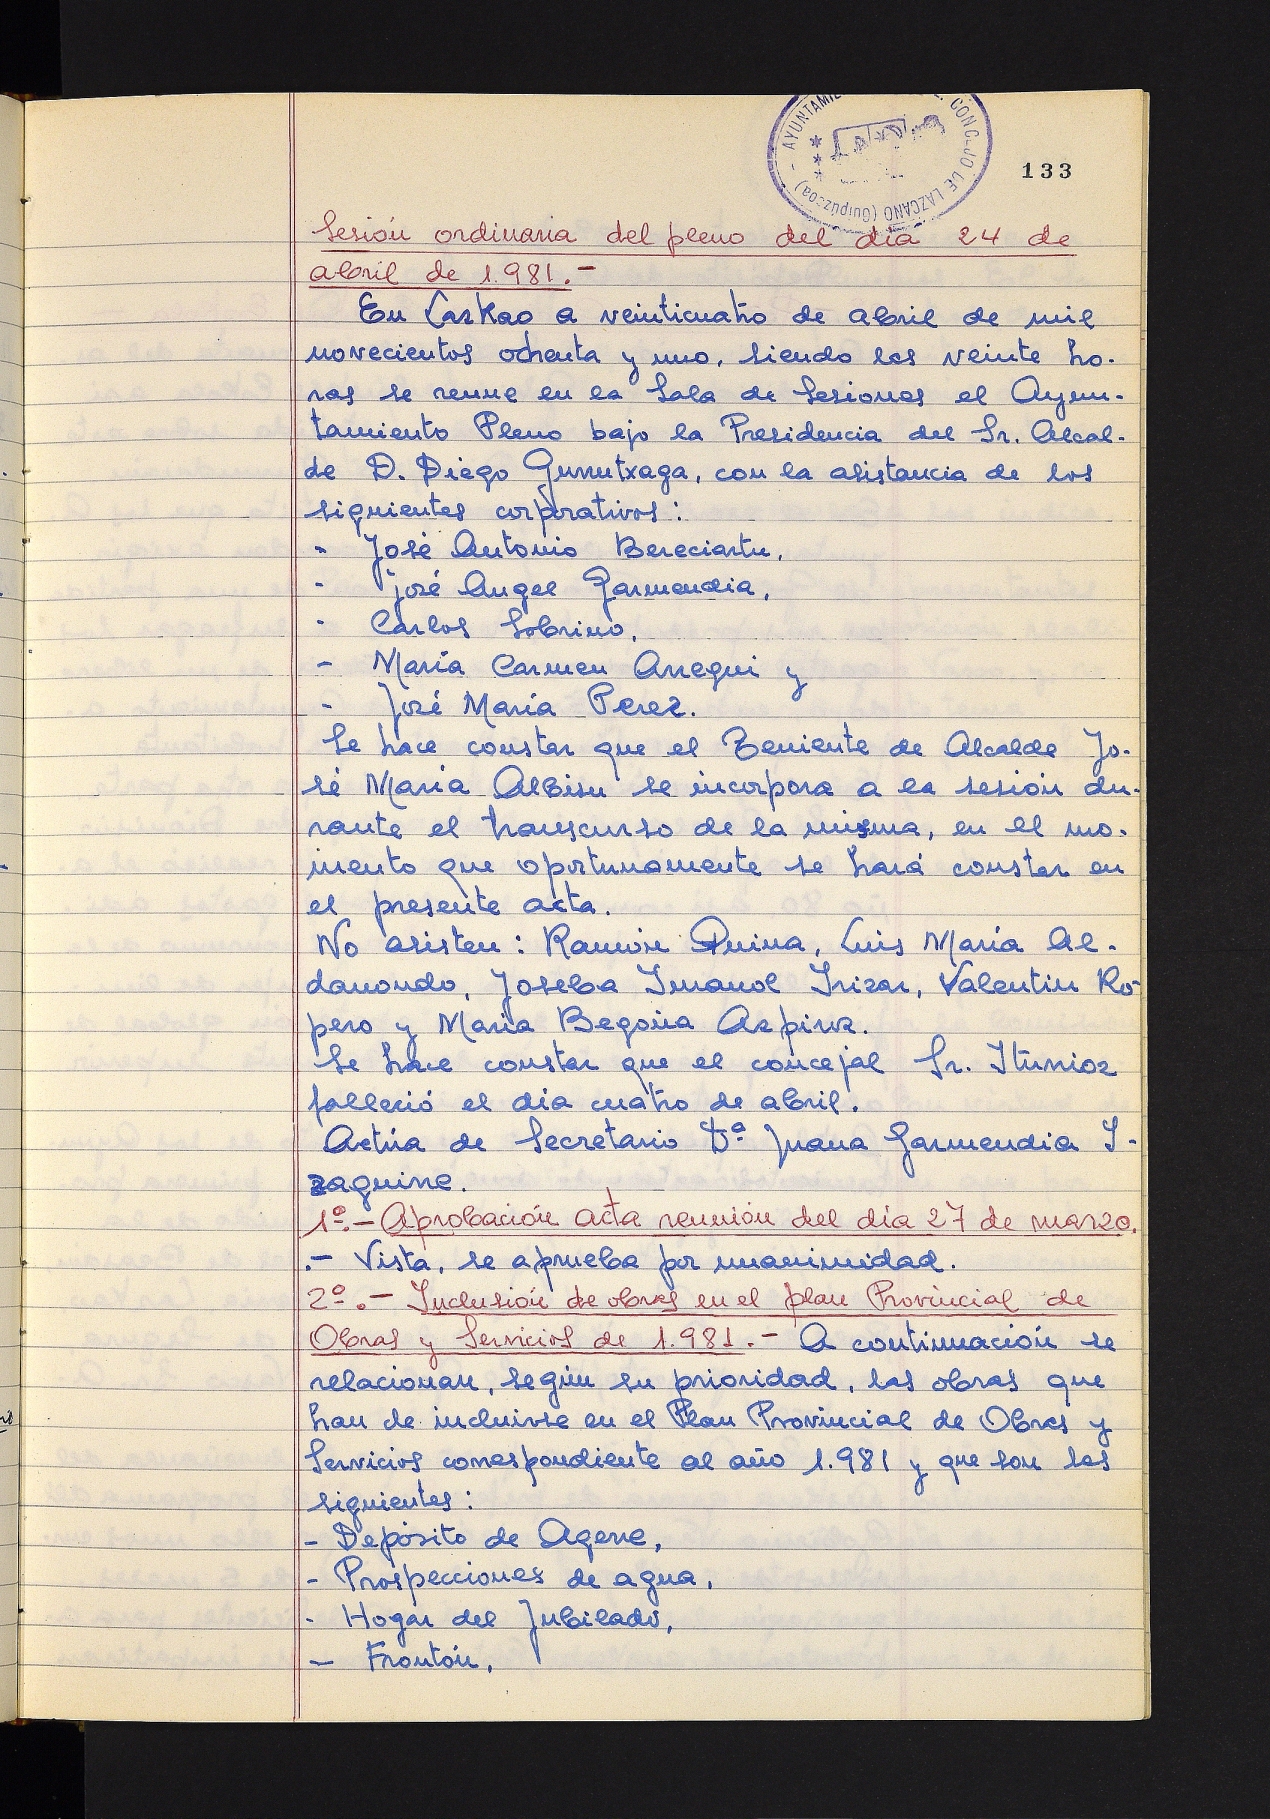 AYUNTAMIE CONCEJO DE LAZCANO (Guipúzcoa)
133
Sesión ordinaria del pleno del día 24 de
abril de 1.981.-
En Lazkao a veinticuatro de abril de mil
novecientos ochenta y uno, siendo las veinte ho-
ras se reune en la Sala de Sesiones el Ayun-
tamiento Pleno bajo la Presidencia del Sr. Alcal-
de D. Diego Gurrutxaga, con la asistencia de los
siguientes corporativos:
- José Antonio Bereciartu,
- José Angel Garmendia,
- Carlos Sobrino,
- María Carmen Arregui y
- José María Perez.
Se hace constar que el Teniente de Alcalde Jo-
sé María Albisu se incorpora a la sesión du-
rante el transcurso de la misma, en el mo-
mento que oportunamente se hará constar en
el presente acta.
No asisten: Ramón Quina, Luis María Al-
damondo, Joseba Imanol Irizar, Valentin Ro-
pero y María Begoña Azpiroz.
Se hace constar que el concejal Sr. Iturrioz
falleció el día cuatro de abril.
Actúa de Secretario Dª Juana Garmendia I-
zaguirre.
1º.- Aprobación acta reunión del día 27 de marzo.
.- Vista, se aprueba por unanimidad.
2º.- Inclusión de obras en el plan Provincial de
Obras y Servicios de 1.981.- A continuación se
relacionan, según su prioridad, las obras que
han de incluirse en el Plan Provincial de Obras y
Servicios correspondiente al año 1.981 y que son las
siguientes:
- Depósito de Agerre,
- Prospecciones de agua,
- Hogar del Jubilado,
- Frontón,